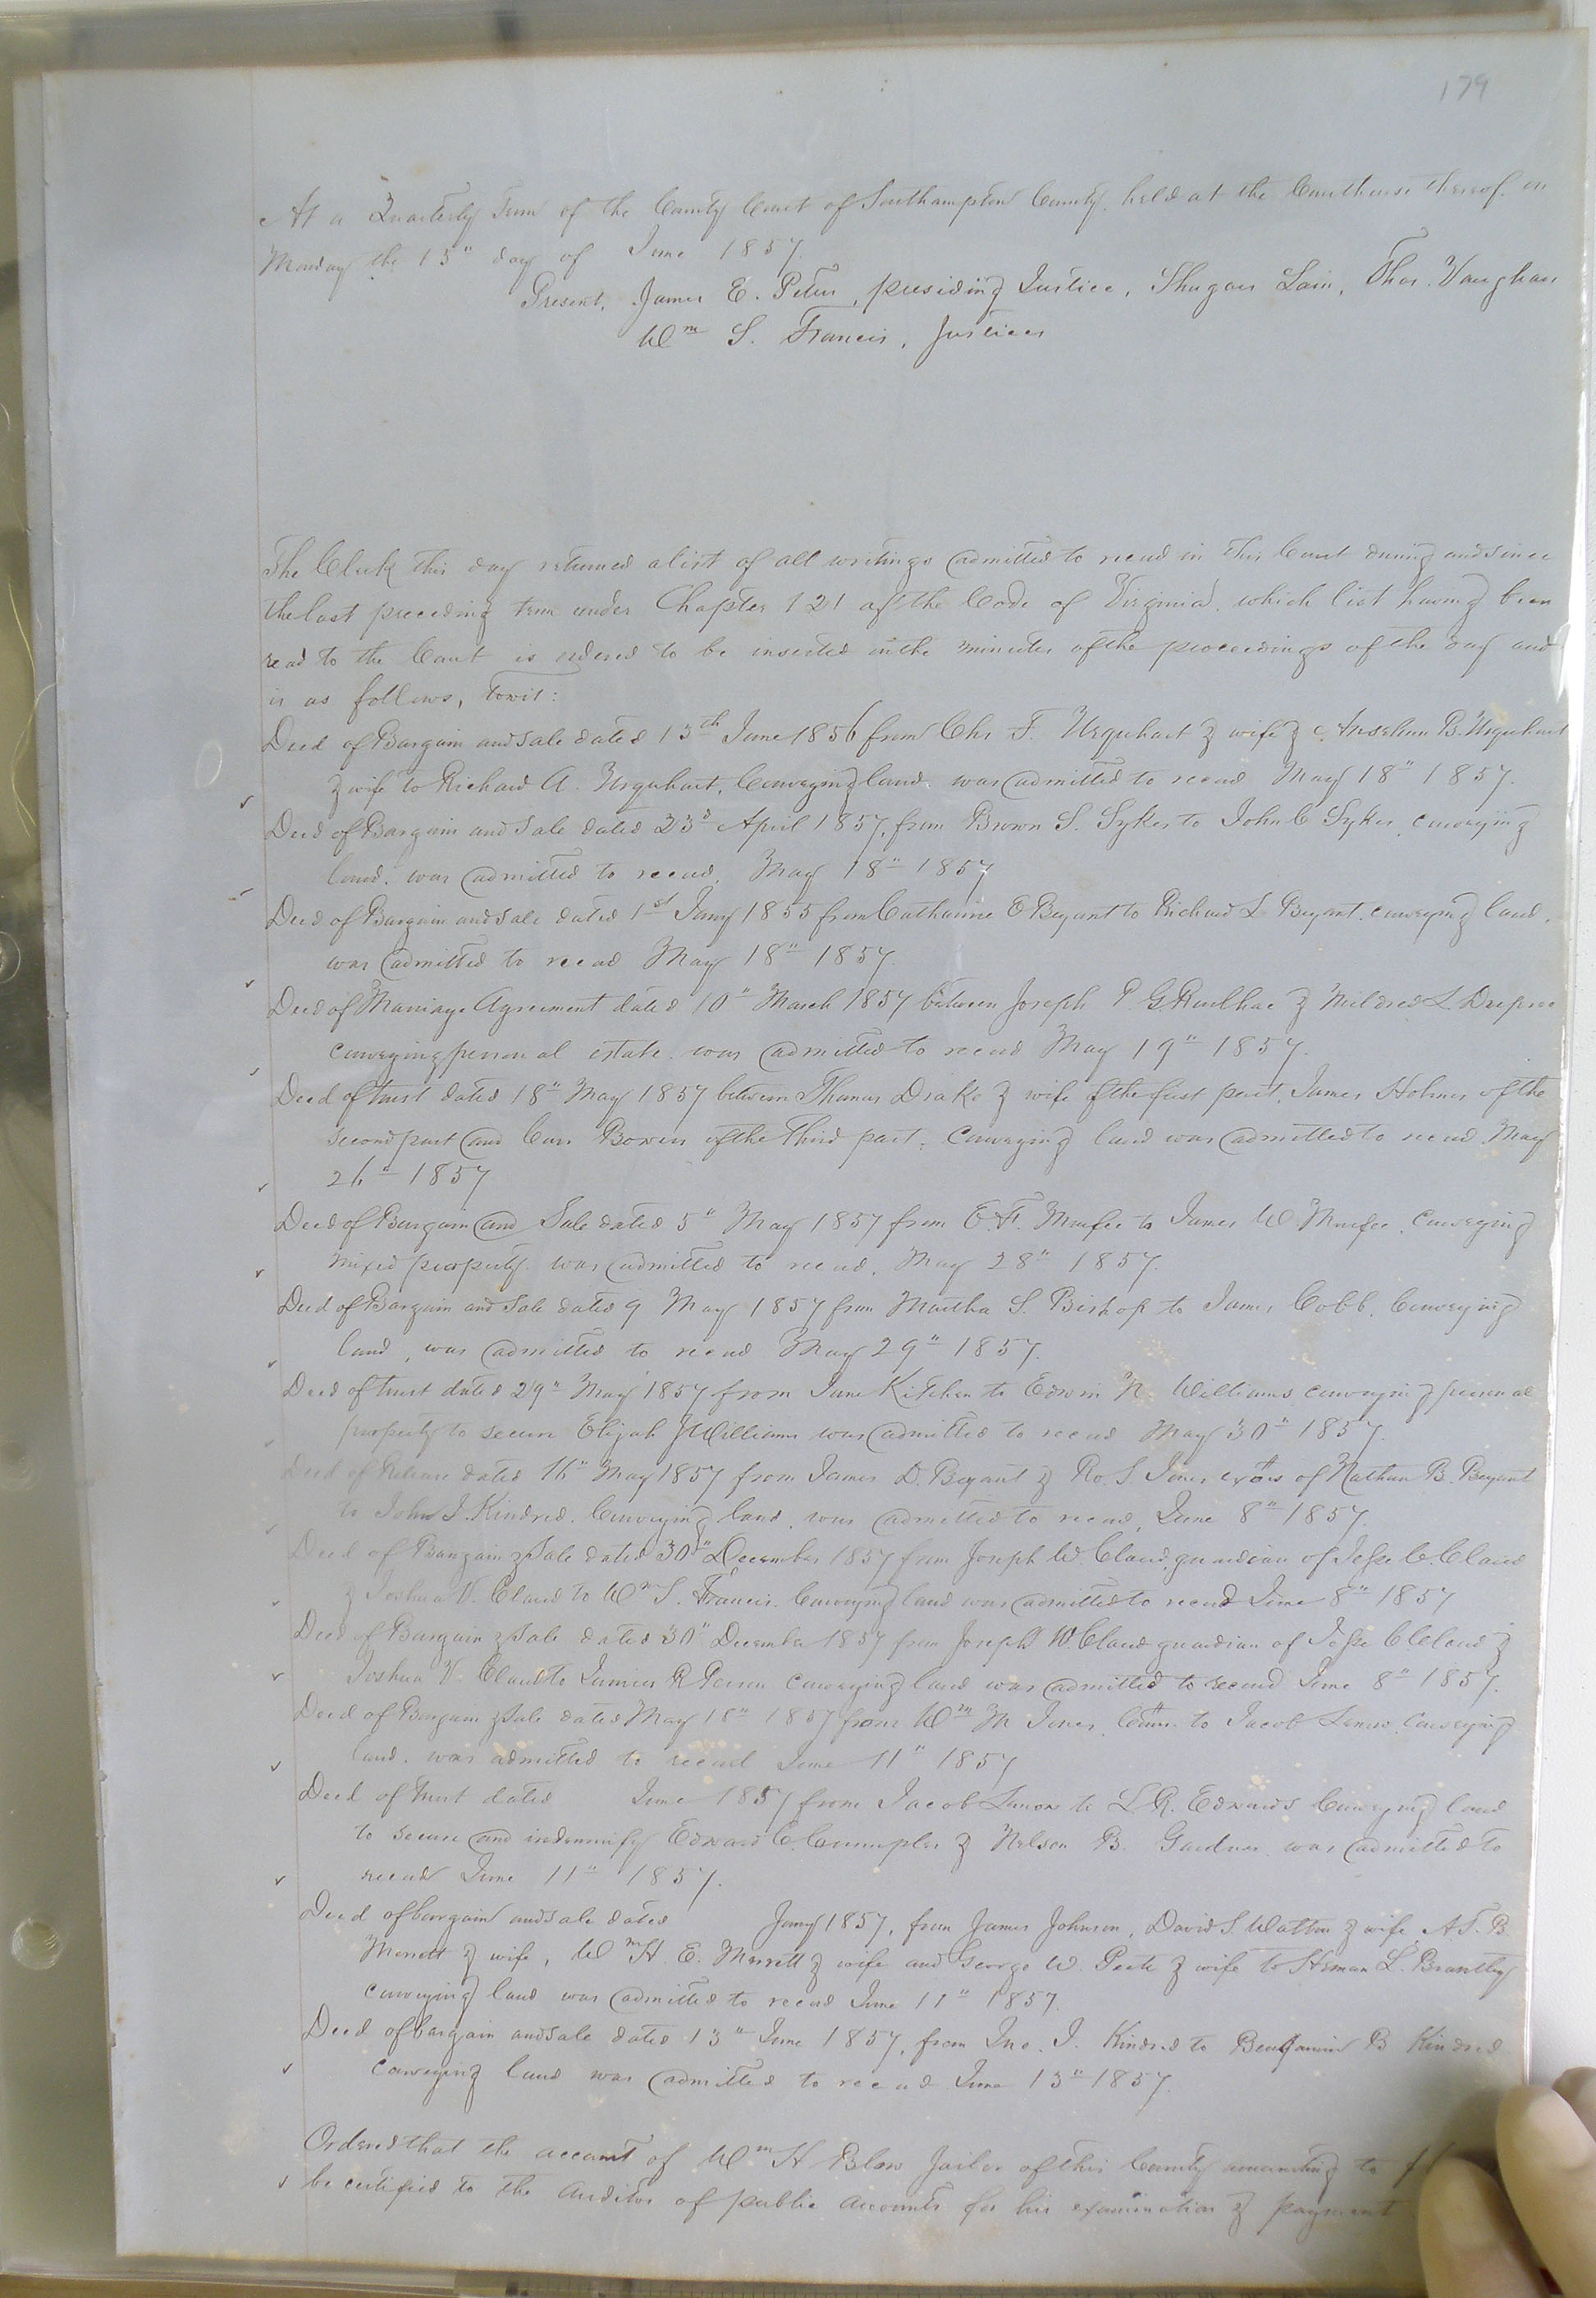 179
At a Quarterly Term of the County Court of Southampton County, held at the Courthouse thereof on
Monday the 15" day of June 1857.
Present, James E. Peters, presiding Justice, Shugars Lain, Thos. Vaughan
Wm S. Francis, Justices
The Clerk this day returned a list of all writings admitted to record in this Court during and since
the last preceding term under Chapter 121 of the Code of Virginia, which list having been
read to the Court is ordered to be inserted in the minutes of the proceedings of the day and
is as follows, towit:
Deed of Bargain and Sale dated 13th June 1856 from Chs F. Urquhart & wife & Anselum B. Urquhart
& wife to Richard A. Urquhart, Conveying land. was admitted to record May 18" 1857.
Deed of Bargain and Sale dated 23d April 1857, from Brown S. Sykes to John C Sykes, conveying
land. was admitted to record, May 18" 1857
Deed of Bargain and Sale dated 1st Jany 1855 from Catharine E Bryant to Richard L Bryant. conveying land,
was admitted to record May 18" 1857.
Deed of Marriage Agreement dated 10" March 1857 between Joseph P G Ruelhac & Mildred L Dupree
conveying personal estate. was admitted to record May 19" 1857.
Deed of trust dated 18" May 1857 between Thomas Drake & wife of the first part, James Holmes of the
second part and Carr Bowers of the third part, Conveying land was admitted to record May
26" 1857
Deed of Bargain and Sale dated 5" May 1857 from E. F. Murfee to James W Murfee. Conveying
mixed property. was admitted to record, May 28" 1857.
Deed of Bargain and Sale dated 9 May 1857 from Martha S. Bishop to James Cobb, Conveying
land, was admitted to record May 29" 1857.
Deed of trust dated 29" May 1857 from June Kitchen to Edwin N. Williams conveying personal
property to secure Elijah J Williams was admitted to record May 30" 1857.
Deed of Release dated 16" May 1857 from James D. Bryant & Ro. S. Jones exors of Nathan B. Bryant
to John J. Kindred. Conveying land. was admitted to record, June 8" 1857.
Deed of Bargain & Sale dated 30" December 1857 from Joseph W. Claud, guardian of Jesse C. Claud
& Joshua V. Claud to Wm S. Francis. Conveying land was admitted to record June 8" 1857
Deed of Bargain & Sale dated 30" December 1857 from Joseph W. Claud guardian of Jesse C Claud &
Joshua V. Claud to Junius R Person conveying land was admitted to record June 8" 1857.
Deed of Bargain & Sale dated May 18" 1857 from Wm M Jones, Comr. to Jacob conveying
land. was admitted to record June 11" 1857
Deed of trust dated June 1857 from Jacob to L R. Edwards Conveying land
to secure and indemnify Edward C. Crumpler & Nelson B. Gardner was admitted to
record June 11" 1857.
Deed of bargain and sale dated Jany 1857, from James Johnson, David S. Watson & wife, A S. B.
Merrett & wife, Wm H. E. Merrett & wife and George W. Peete & wife to Heman L. Brantley
conveying land was admitted to record June 11" 1857.
Deed of bargain and sale dated 13" June 1857, from Jno. J. Kindred to Benjamin B Kindred
conveying land was admitted to record June 13" 1857.
Ordered that the account of Wm H Blow Jailor of this County amounting to
be certified to the Auditor of public accounts for his examination & payment